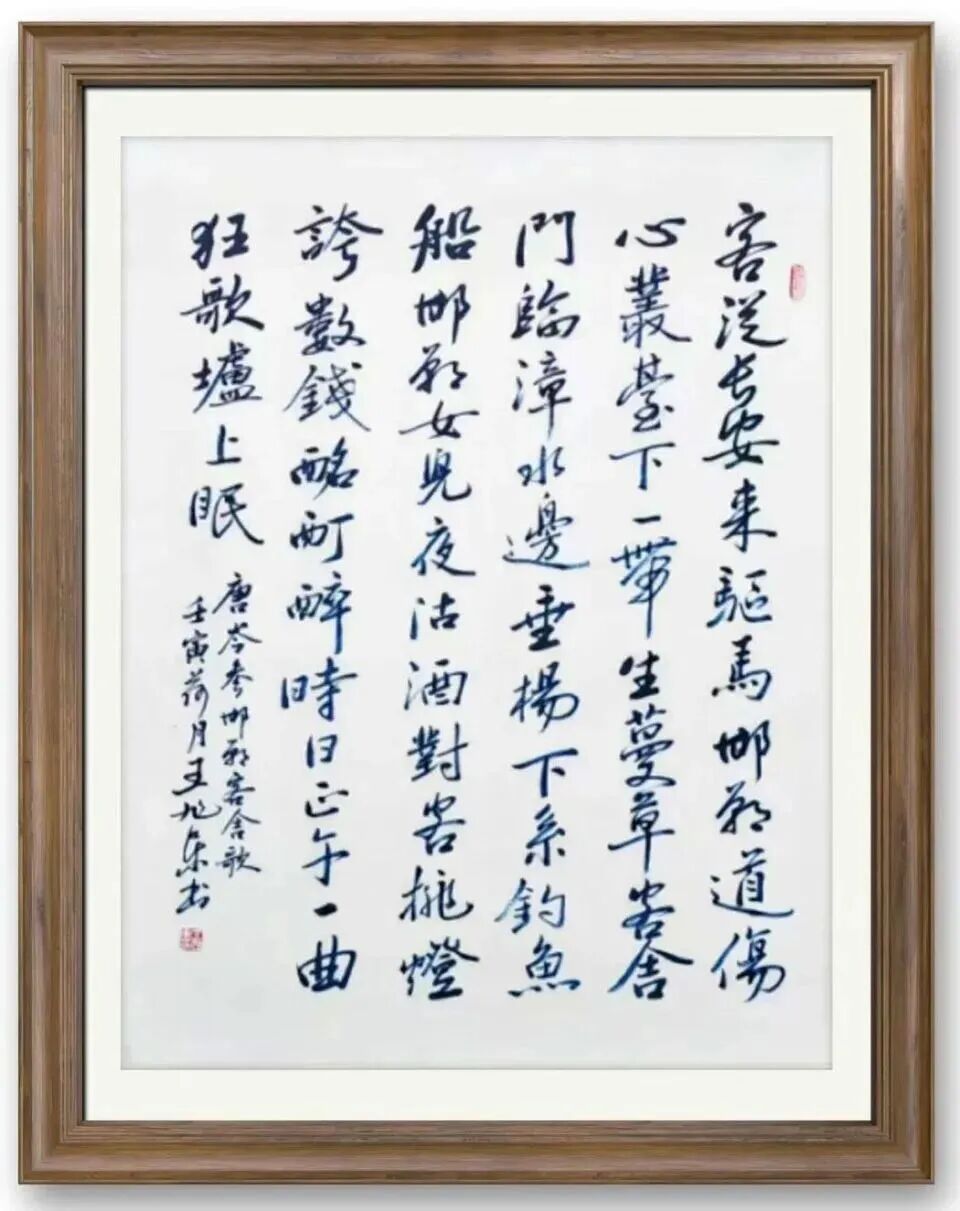 客從長安来驅馬邯鄲道傷
心叢臺下一帶生蔓草客舍
門臨漳水邊垂楊下系釣魚
船邯鄲女兒夜沽酒對客挑燈
誇數錢酩酊醉時日正午一曲
狂歌壚上眠
唐岑參邯鄲客舍歌
壬寅荷月王旭东书